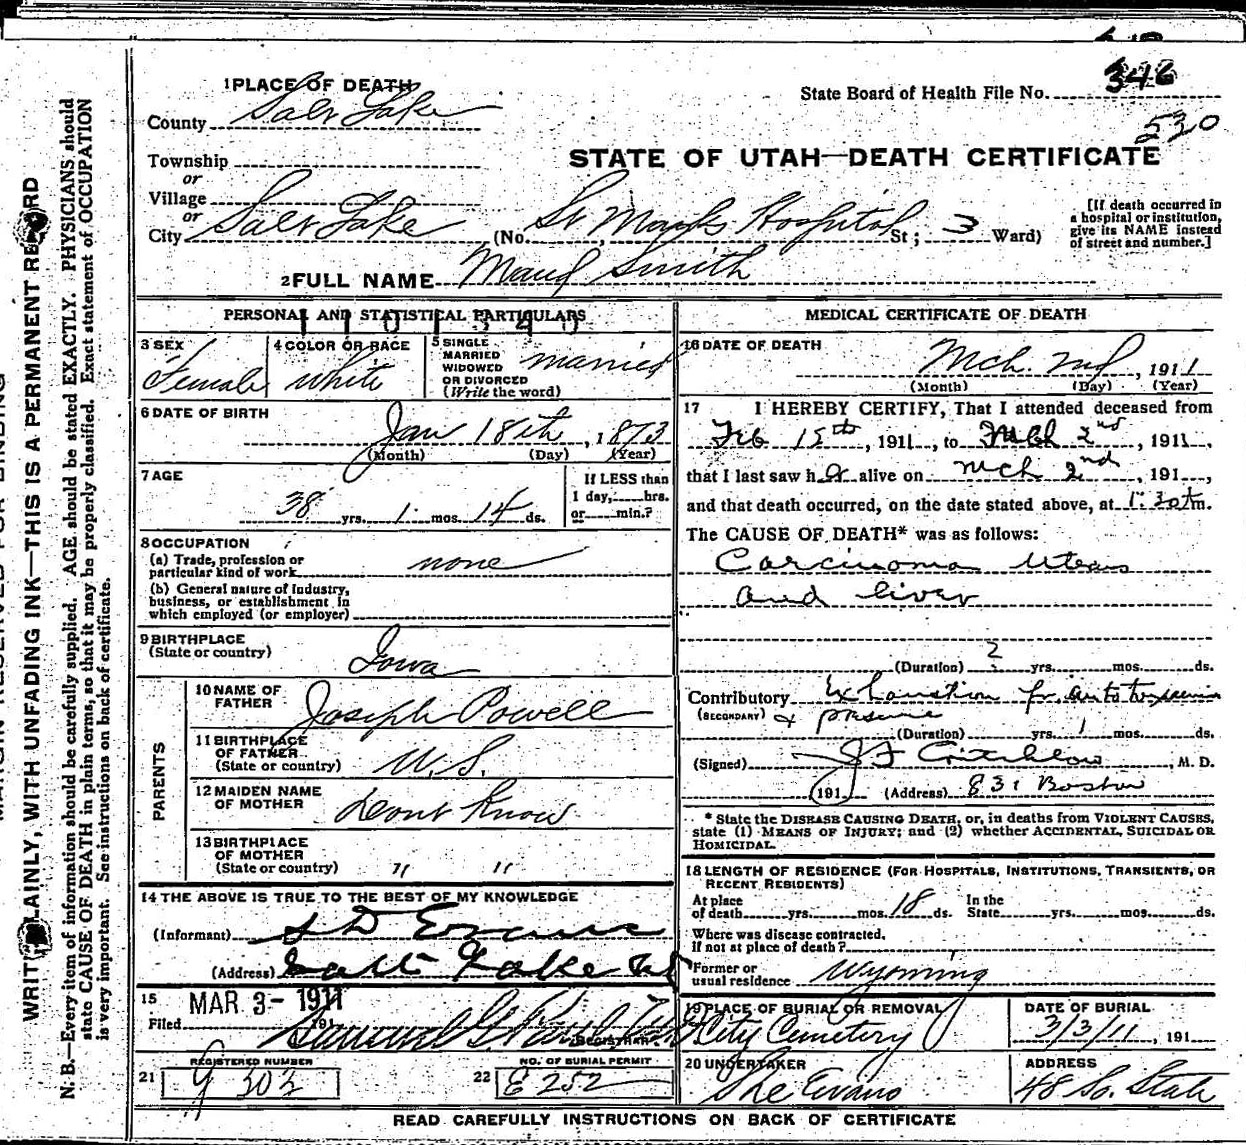 346
State Board of Health File No.
530
1 PLACE OF DEATH
County Salt Lake
Township
or
Village
or
City Salt Lake (No. St Marks Hospital St; 3 Ward)
STATE OF UTAH—DEATH CERTIFICATE
[If death occurred in a hospital or institution, give its NAME instead of street and number.]
2 FULL NAME Maud Smith
PERSONAL AND STATISTICAL PARTICULARS
1101340
3 SEX
Female
4 COLOR OR RACE
white
5 SINGLE
MARRIED
WIDOWED
OR DIVORCED
(Write the word)
married
6 DATE OF BIRTH
Jan 18th, 1873
(Month) (Day) (Year)
7 AGE
38 yrs. 1 mos. 14 ds.
If LESS than
1 day, hrs.
or min.?
8 OCCUPATION
(a) Trade, profession or
particular kind of work none
(b) General nature of Industry,
business, or establishment in
which employed (or employer)
9 BIRTHPLACE
(State or country)
Iowa
PARENTS
10 NAME OF
FATHER
Joseph Powell
11 BIRTHPLACE
OF FATHER
(State or country)
U.S.
12 MAIDEN NAME
OF MOTHER
Dont Know
13 BIRTHPLACE
OF MOTHER
(State or country) " "
14 THE ABOVE IS TRUE TO THE BEST OF MY KNOWLEDGE
(Informant) S D Evans
(Address) Salt Lake
15
MAR 3- 1911
Filed 191
REGISTRAR
REGISTERED NUMBER
21 303
NO. OF BURIAL PERMIT
22 E 252
MEDICAL CERTIFICATE OF DEATH
16 DATE OF DEATH
Mch. 2nd, 1911
(Month) (Day) (Year)
17 I HEREBY CERTIFY, That I attended deceased from
Feb 15th, 1911, to Mch 2nd, 1911,
that I last saw her alive on Mch 2nd, 191 ,
and that death occurred, on the date stated above, at 1:30 m.
The CAUSE OF DEATH* was as follows:
Carcinoma Uterus
and liver
(Duration) 2 yrs. mos. ds.
Contributory Exhaustion fr. autotoxemia
(SECONDARY) & pressure
(Duration) yrs. 1 mos. ds.
(Signed) J F Critchlow, M. D.
191 (Address) 831 Boston
* State the DISEASE CAUSING DEATH, or, in deaths from VIOLENT CAUSES,
state (1) MEANS OF INJURY; and (2) whether ACCIDENTAL, SUICIDAL OR
HOMICIDAL.
18 LENGTH OF RESIDENCE (FOR HOSPITALS, INSTITUTIONS, TRANSIENTS, OR
RECENT RESIDENTS)
At place
of death yrs. mos. 18 ds. In the
State yrs. mos. ds.
Where was disease contracted,
if not at place of death?
Former or
usual residence Wyoming
19 PLACE OF BURIAL OR REMOVAL
City Cemetery
DATE OF BURIAL
3/3/11, 191
20 UNDERTAKER
The Evans
ADDRESS
48 So. State
READ CAREFULLY INSTRUCTIONS ON BACK OF CERTIFICATE
MARGIN RESERVED FOR BINDING
WRITE PLAINLY, WITH UNFADING INK—THIS IS A PERMANENT RECORD
N. B.—Every item of information should be carefully supplied. AGE should be stated EXACTLY. PHYSICIANS should
state CAUSE OF DEATH in plain terms, so that it may be properly classified. Exact statement of OCCUPATION
is very important. See instructions on back of certificate.